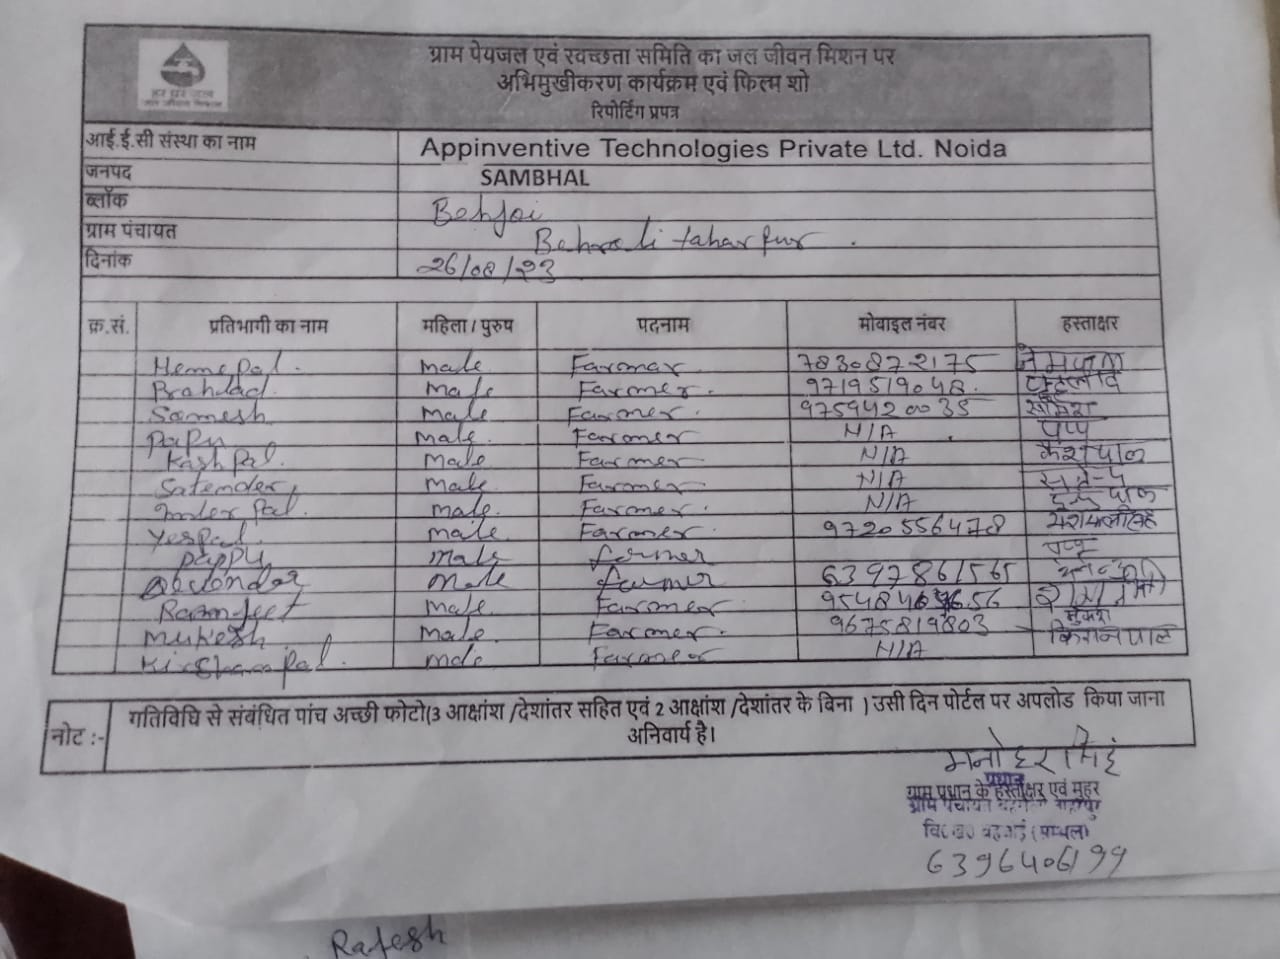 हर घर जल
जल जीवन मिशन
ग्राम पेयजल एवं स्वच्छता समिति का जल जीवन मिशन पर
अभिमुखीकरण कार्यक्रम एवं फिल्म शो
रिपोर्टिंग प्रपत्र
आई.ई.सी संस्था का नाम Appinventive Technologies Private Ltd. Noida
जनपद SAMBHAL
ब्लॉक Behjoi
ग्राम पंचायत Behroli taharpur .
दिनांक 26/08/23
क्र.सं. प्रतिभागी का नाम महिला / पुरुष पदनाम मोबाइल नंबर हस्ताक्षर
Hemepal. Male Farmar 7830872175 नेमपाल
Brahlad Male Farmer. 9719519048.
Somesh Male Farmer. 9759420035 सोमेश
Papu Male. Farmer N/A पप्पू
Kashpal. Male Farmer N/A कैशपाल
Satender, Male Farmer. N/A
Inderpal. Male. Farmer. N/A
Yespal. Male Farmer 9720556478 यशपालसिंह
Pappu Male farmer पप्पू
Male farmer 6397861565
Ramjeet Male. Farmer
Mukesh Male. Farmer. 9675819803 मुकेश
Kirshanpal. Male Farmer N/A किशनपाल
नोट :- गतिविधि से संबंधित पांच अच्छी फोटो(3 आक्षांश /देशांतर सहित एवं 2 आक्षांश /देशांतर के विना ) उसी दिन पोर्टल पर अपलोड किया जाना
अनिवार्य है।
मनोहर सिंह
प्रधान
ग्राम प्रधान के हस्ताक्षर एवं मुहर
ग्राम पंचायत
6396406199
Rajesh